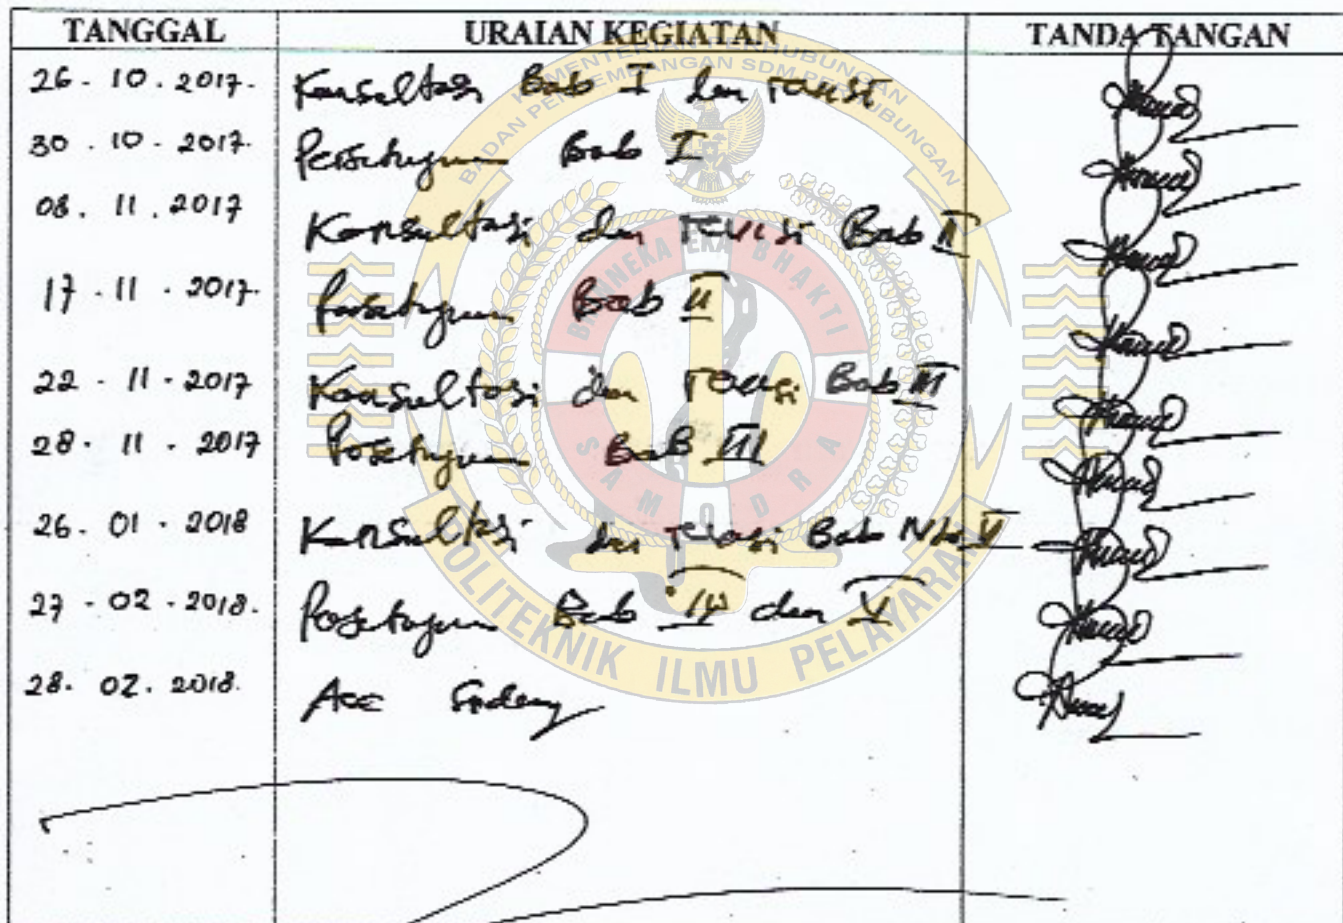 TANGGAL URAIAN KEGIATAN TANDA TANGAN
26 - 10 . 2017. Konsultasi Bab I dan revisi
30 . 10 - 2017. Persetujuan Bab I
08 . 11 . 2017 Konsultasi dan revisi Bab II
17 - 11 - 2017. Persetujuan Bab II
22 - 11 - 2017 Konsultasi dan revisi Bab III
28 - 11 - 2017 Persetujuan Bab III
26 . 01 - 2018 Konsultasi dan revisi Bab IV dan V
27 - 02 - 2018. Persetujuan Bab IV dan V
28 . 02 . 2018. Acc Sidang
BADAN PENGEMBANGAN SDM PERHUBUNGAN
KEMENTERIAN PERHUBUNGAN
BHINNEKA EKA BHAKTI
SAMODRA
POLITEKNIK ILMU PELAYARAN